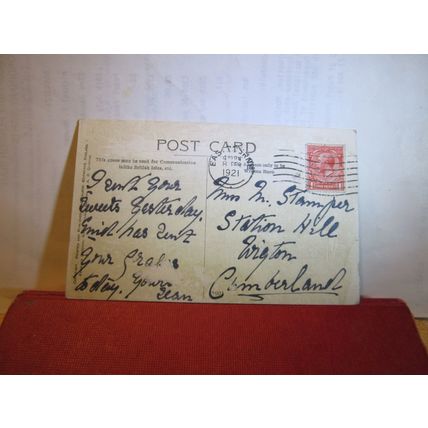 POST CARD
This space may be used for Communication
in the British Isles, etc.
only to be
Written Here.
1921
I sent your
sweets yesterday.
Enid has sent
your
today. Yours
Jean
Miss M. Stamper
Station Hill
Wigton
Cumberland